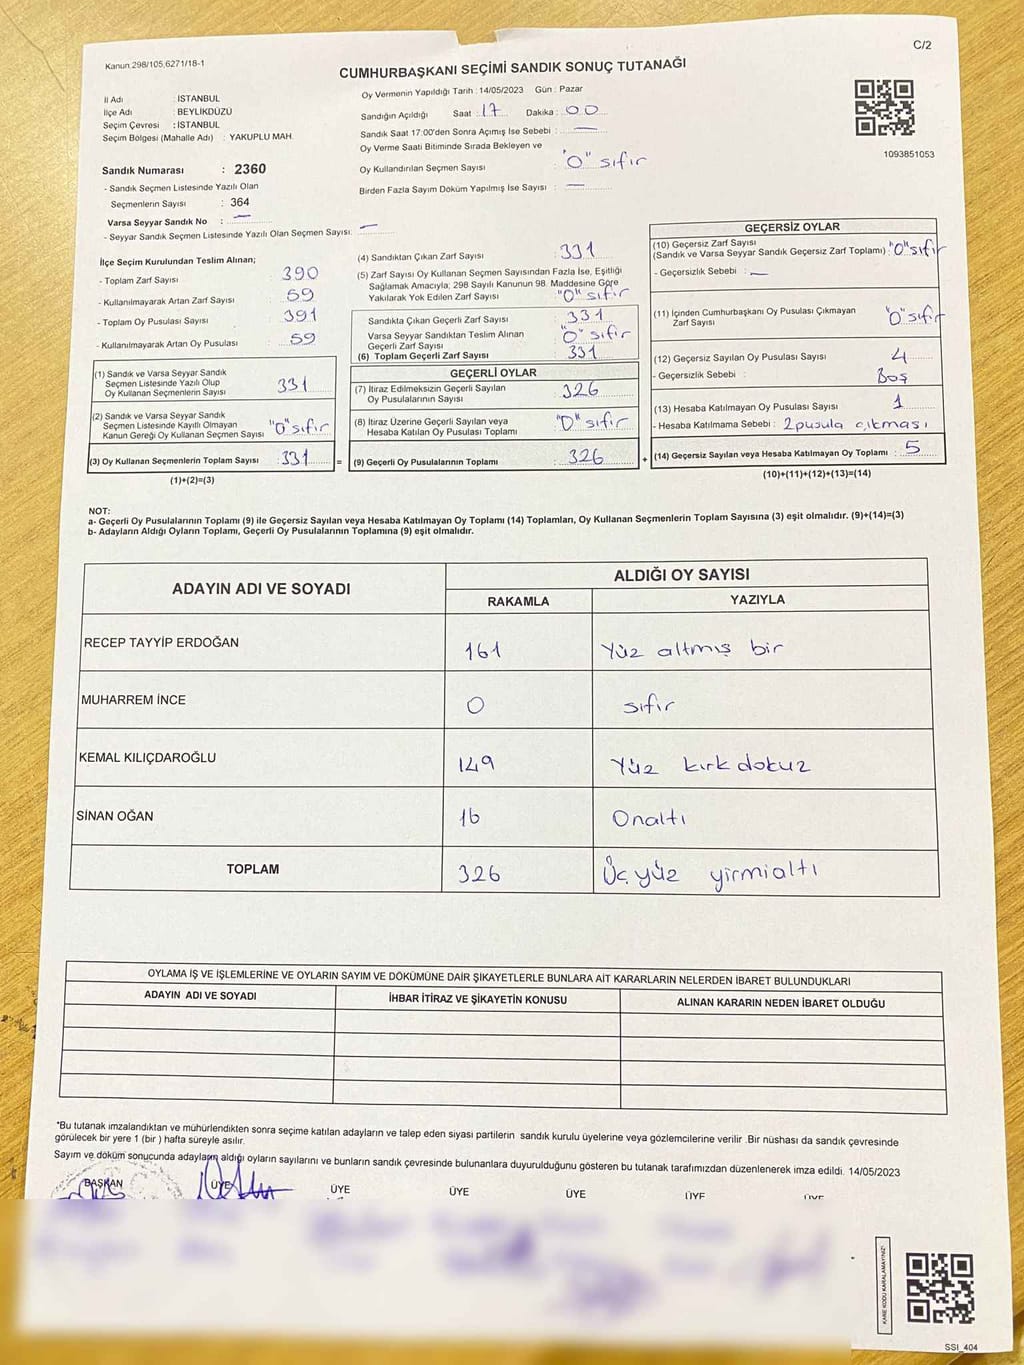 C/2
Kanun:298/105,6271/18-1
CUMHURBAŞKANI SEÇİMİ SANDIK SONUÇ TUTANAĞI
1093851053
İl Adı : İSTANBUL
İlçe Adı : BEYLİKDÜZÜ
Seçim Çevresi : İSTANBUL
Seçim Bölgesi (Mahalle Adı) : YAKUPLU MAH.
Sandık Numarası : 2360
- Sandık Seçmen Listesinde Yazılı Olan
Seçmenlerin Sayısı : 364
Varsa Seyyar Sandık No : —
- Seyyar Sandık Seçmen Listesinde Yazılı Olan Seçmen Sayısı: —
Oy Vermenin Yapıldığı Tarih : 14/05/2023 Gün : Pazar
Sandığın Açıldığı Saat : 17 Dakika : 00
Sandık Saat 17:00'den Sonra Açımış İse Sebebi : —
Oy Verme Saati Bitiminde Sırada Bekleyen ve
Oy Kullandırılan Seçmen Sayısı : "0" sıfır
Birden Fazla Sayım Döküm Yapılmış İse Sayısı : —
İlçe Seçim Kurulundan Teslim Alınan;
- Toplam Zarf Sayısı : 390
- Kullanılmayarak Artan Zarf Sayısı : 59
- Toplam Oy Pusulası Sayısı : 391
- Kullanılmayarak Artan Oy Pusulası : 59
(1) Sandık ve Varsa Seyyar Sandık
Seçmen Listesinde Yazılı Olup
Oy Kullanan Seçmenlerin Sayısı : 331
(2) Sandık ve Varsa Seyyar Sandık
Seçmen Listesinde Kayıtlı Olmayan
Kanun Gereği Oy Kullanan Seçmen Sayısı : "0" sıfır
(3) Oy Kullanan Seçmenlerin Toplam Sayısı : 331
(1)+(2)=(3)
(4) Sandıktan Çıkan Zarf Sayısı : 331
(5) Zarf Sayısı Oy Kullanan Seçmen Sayısından Fazla İse, Eşitliği
Sağlamak Amacıyla; 298 Sayılı Kanunun 98. Maddesine Göre
Yakılarak Yok Edilen Zarf Sayısı : "0" sıfır
Sandıkta Çıkan Geçerli Zarf Sayısı : 331
Varsa Seyyar Sandıktan Teslim Alınan
Geçerli Zarf Sayısı : "0" sıfır
(6) Toplam Geçerli Zarf Sayısı : 331
GEÇERLİ OYLAR
(7) İtiraz Edilmeksizin Geçerli Sayılan
Oy Pusulasının Sayısı : 326
(8) İtiraz Üzerine Geçerli Sayılan veya
Hesaba Katılan Oy Pusulası Toplamı : "0" sıfır
= (9) Geçerli Oy Pusulalarının Toplamı : 326
GEÇERSİZ OYLAR
(10) Geçersiz Zarf Sayısı
(Sandık ve Varsa Seyyar Sandık Geçersiz Zarf Toplamı) : "0" sıfır
- Geçersizlik Sebebi : —
(11) İçinden Cumhurbaşkanı Oy Pusulası Çıkmayan
Zarf Sayısı : "0" sıfır
(12) Geçersiz Sayılan Oy Pusulası Sayısı : 4
- Geçersizlik Sebebi : Boş
(13) Hesaba Katılmayan Oy Pusulası Sayısı : 1
- Hesaba Katılmama Sebebi : 2 pusula çıkması
+ (14) Geçersiz Sayılan veya Hesaba Katılmayan Oy Toplamı : 5
(10)+(11)+(12)+(13)=(14)
NOT:
a- Geçerli Oy Pusulalarının Toplamı (9) ile Geçersiz Sayılan veya Hesaba Katılmayan Oy Toplamı (14) Toplamları, Oy Kullanan Seçmenlerin Toplam Sayısına (3) eşit olmalıdır. (9)+(14)=(3)
b- Adayların Aldığı Oyların Toplamı, Geçerli Oy Pusulalarının Toplamına (9) eşit olmalıdır.
ADAYIN ADI VE SOYADI ALDIĞI OY SAYISI
RAKAMLA YAZIYLA
RECEP TAYYİP ERDOĞAN 161 Yüz altmış bir
MUHARREM İNCE 0 sıfır
KEMAL KILIÇDAROĞLU 149 Yüz kırk dokuz
SİNAN OĞAN 16 Onaltı
TOPLAM 326 Üç yüz yirmialtı
OYLAMA İŞ VE İŞLEMLERİNE VE OYLARIN SAYIM VE DÖKÜMÜNE DAİR ŞİKAYETLERLE BUNLARA AİT KARARLARIN NELERDEN İBARET BULUNDUKLARI
ADAYIN ADI VE SOYADI İHBAR İTİRAZ VE ŞİKAYETİN KONUSU ALINAN KARARIN NEDEN İBARET OLDUĞU
*Bu tutanak imzalandıktan ve mühürlendikten sonra seçime katılan adayların ve talep eden siyasi partilerin sandık kurulu üyelerine veya gözlemcilerine verilir .Bir nüshası da sandık çevresinde
görülecek bir yere 1 (bir ) hafta süreyle asılır.
Sayım ve döküm sonucunda adayların aldığı oyların sayılarını ve bunların sandık çevresinde bulunanlara duyurulduğunu gösteren bu tutanak tarafımızdan düzenlenerek imza edildi. 14/05/2023
BAŞKAN ÜYE ÜYE ÜYE ÜYE ÜYE ÜYE
KARE KODU KARALAMAYINIZ!
SSİ_404